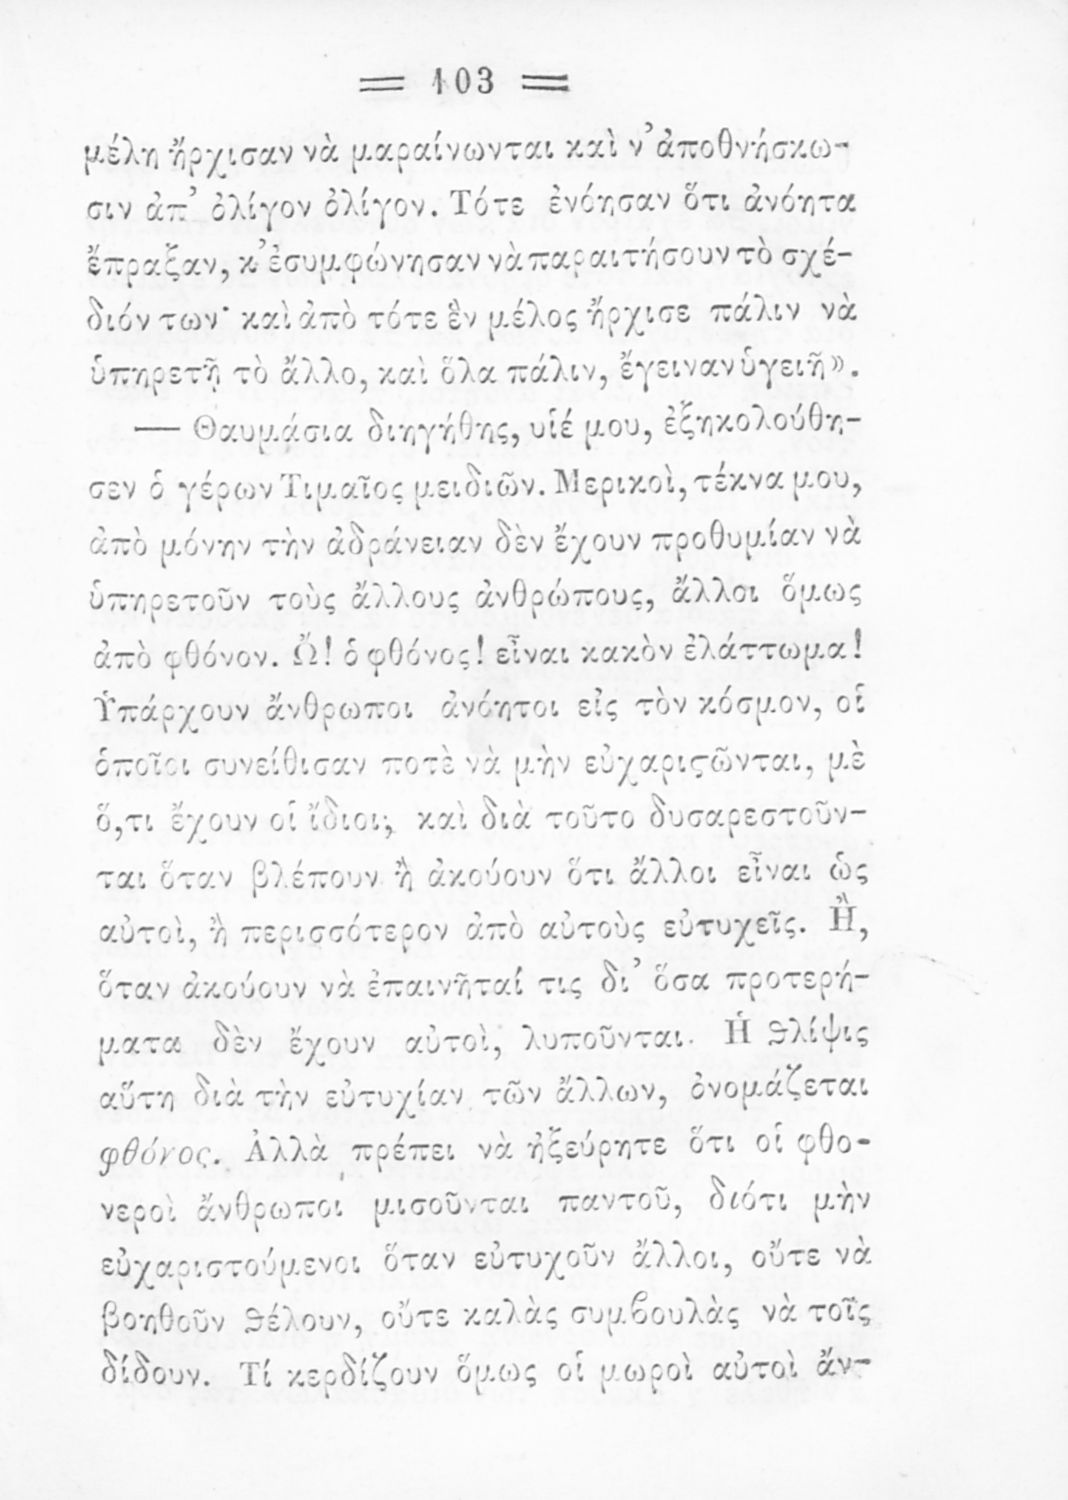 = 103 =
μέλη ἤρχισαν νὰ μαραίνωνται καὶ ν’ ἀποθνήσκω-
σιν ἀπ’ ὀλίγον ὀλίγον. Τότε ἐνόησαν ὅτι ἀνόητα
ἔπραξαν, κ’ ἐσυμφώνησαν νὰ παραιτήσουν τὸ σχέ-
διόν των· καὶ ἀπὸ τότε ἓν μέλος ἤρχισε πάλιν νὰ
ὑπηρετῇ τὸ ἄλλο, καὶ ὅλα πάλιν, ἔγειναν ὑγειῆ».
— Θαυμάσια διηγήθης, υἱέ μου, ἐξηκολούθη-
σεν ὁ γέρων Τιμαῖος μειδιῶν. Μερικοὶ, τέκνα μου,
ἀπὸ μόνην τὴν ἀδράνειαν δὲν ἔχουν προθυμίαν νὰ
ὑπηρετοῦν τοὺς ἄλλους ἀνθρώπους, ἄλλοι ὅμως
ἀπὸ φθόνον. Ὤ! ὁ φθόνος! εἶναι κακὸν ἐλάττωμα!
Ὑπάρχουν ἄνθρωποι ἀνόητοι εἰς τὸν κόσμον, οἱ
ὁποῖοι συνείθισαν ποτὲ νὰ μὴν εὐχαριςῶνται, μὲ
ὅ,τι ἔχουν οἱ ἴδιοι, καὶ διὰ τοῦτο δυσαρεστοῦν-
ται ὅταν βλέπουν ἢ ἀκούουν ὅτι ἄλλοι εἶναι ὡς
αὐτοὶ, ἢ περισσότερον ἀπὸ αὐτοὺς εὐτυχεῖς. Ἢ,
ὅταν ἀκούουν νὰ ἐπαινῆταί τις δι’ ὅσα προτερή-
ματα δὲν ἔχουν αὐτοὶ, λυποῦνται. Ἡ ϑλίψις
αὕτη διὰ τὴν εὐτυχίαν τῶν ἄλλων, ὀνομάζεται
φθόνος. Ἀλλὰ πρέπει νὰ ἠξεύρητε ὅτι οἱ φθο-
νεροὶ ἄνθρωποι μισοῦνται παντοῦ, διότι μὴν
εὐχαριστούμενοι ὅταν εὐτυχοῦν ἄλλοι, οὔτε νὰ
βοηθοῦν ϑέλουν, οὔτε καλὰς συμϐουλὰς νὰ τοῖς
δίδουν. Τί κερδίζουν ὅμως οἱ μωροὶ αὐτοὶ ἄν-